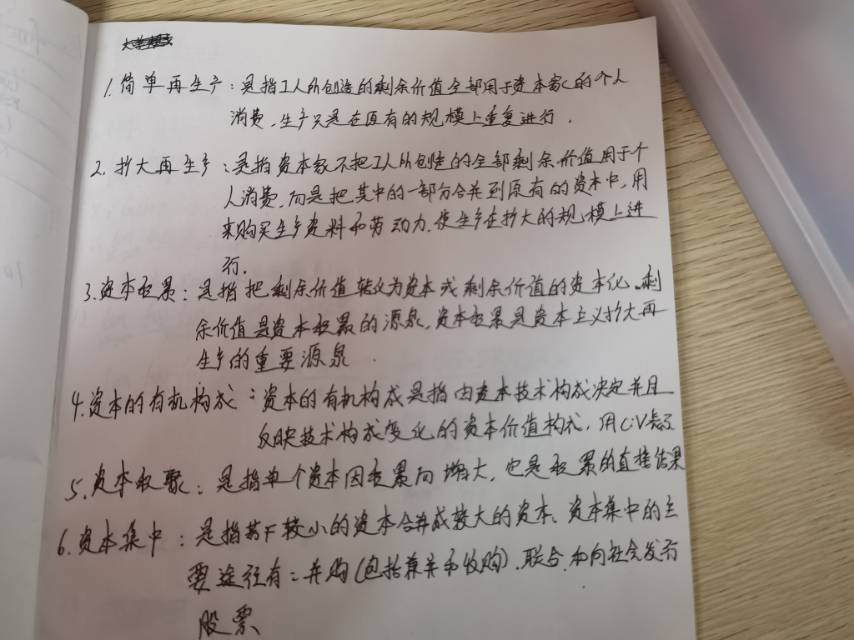 1. 简单再生产：是指工人所创造的剩余价值全部用于资本家的个人
消费，生产只是在原有的规模上重复进行．
2. 扩大再生产：是指资本家不把工人所创造的全部剩余价值用于个
人消费，而是把其中的一部分合并到原有的资本中，用
来购买生产资料和劳动力，使生产在扩大的规模上进
行．
3. 资本积累：是指把剩余价值转化为资本或剩余价值的资本化．剩
余价值是资本积累的源泉，资本积累是资本主义扩大再
生产的重要源泉．
4. 资本的有机构成：资本的有机构成是指由资本技术构成决定并且
反映技术构成变化的资本价值构成，用C:V表示
5. 资本积聚：是指单个资本因积累而增大，也是积累的直接结果
6. 资本集中：是指若干较小的资本合并成较大的资本，资本集中的主
要途径有：并购(包括兼并和收购)，联合，和向社会发行
股票